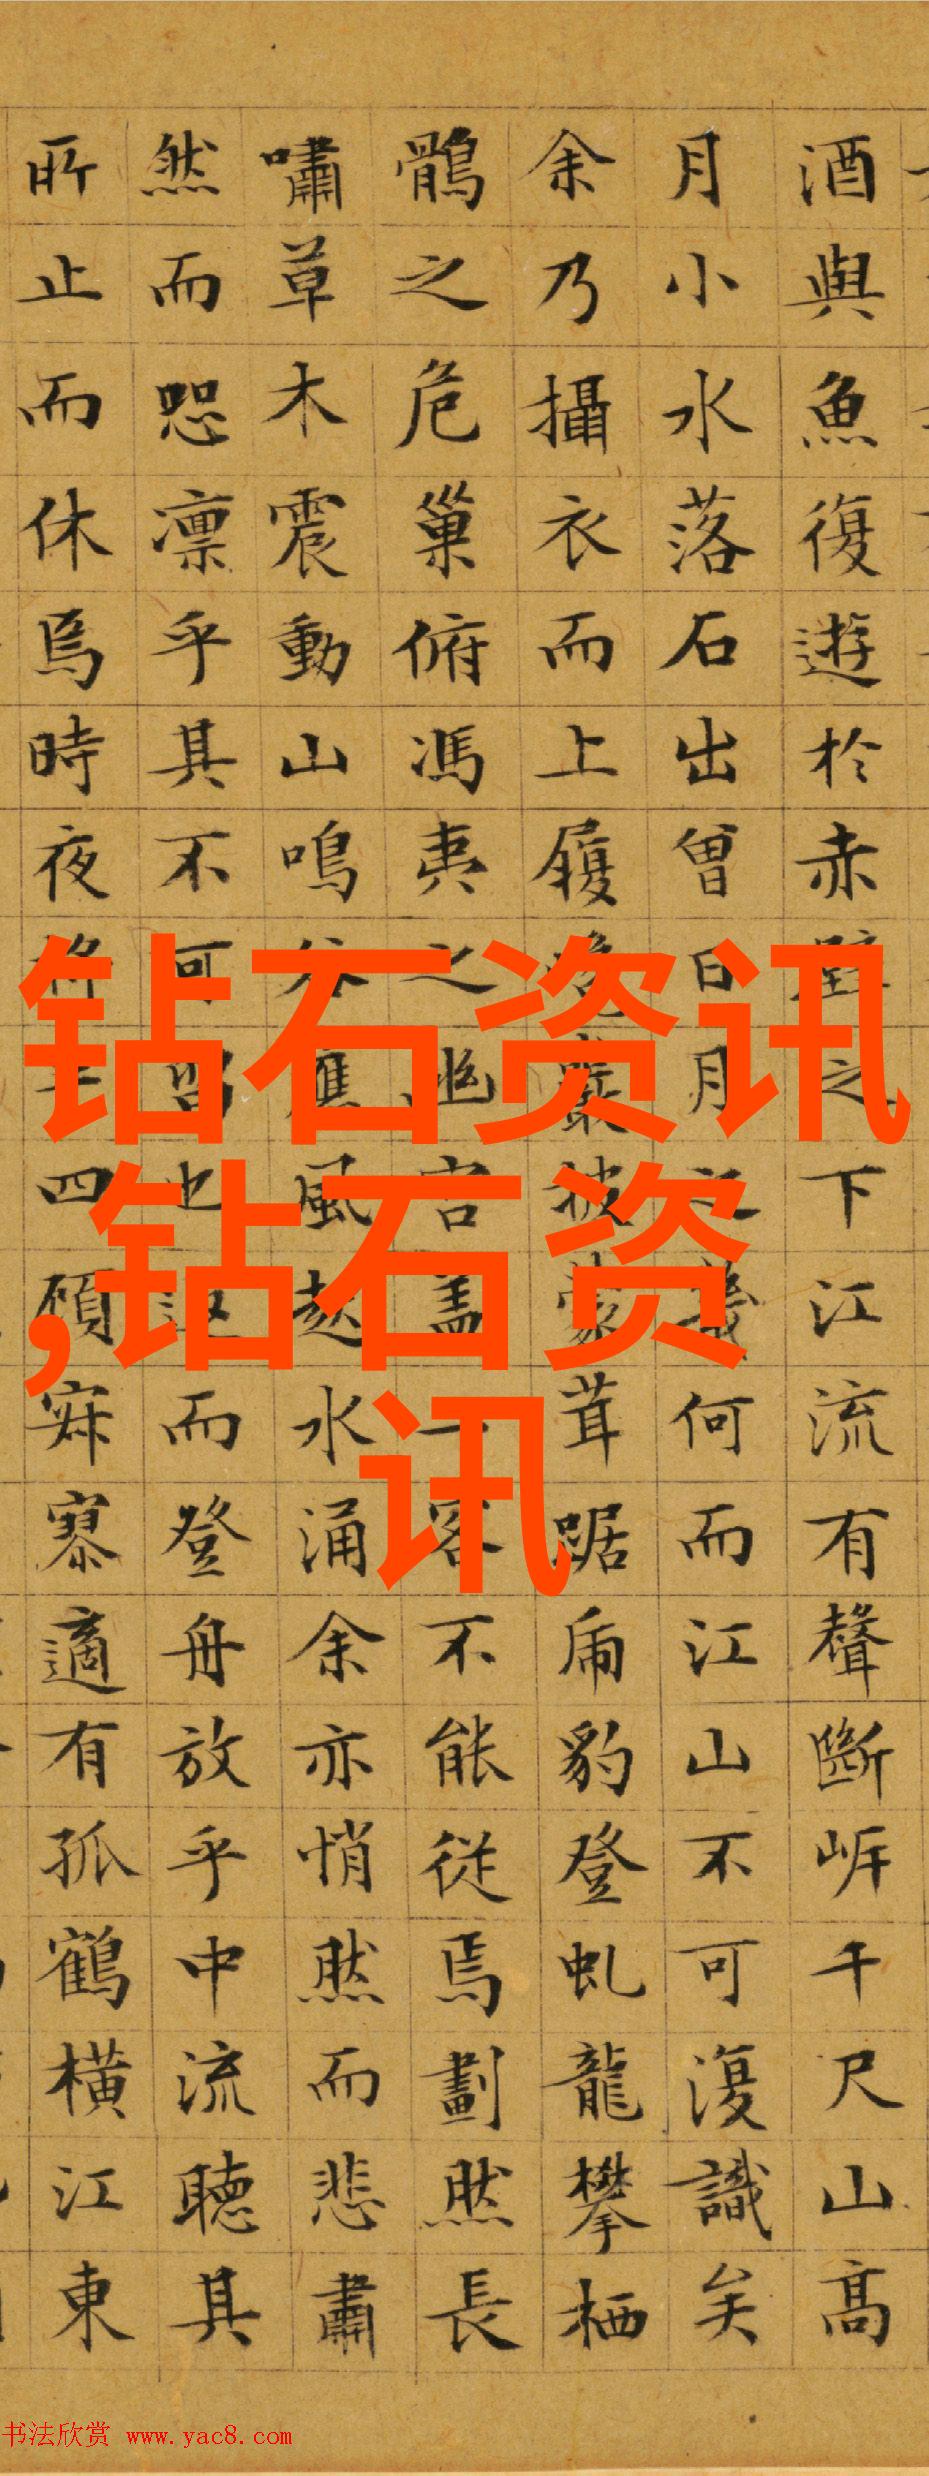 酒與魚復遊於赤壁之下江流有聲斷岸千尺山高
月小水落石出曾日月之幾何而江山不可復識矣
余乃攝衣而上履巉巖披蒙茸踞虎豹登虬龍攀栖
鶻之危巢俯馮夷之幽宮蓋二客不能從焉劃然長
嘯草木震動山鳴谷應風起水涌余亦悄然而悲肅
然而恐凛乎其不可留也返而登舟放乎中流聽其
所止而休焉時夜將半四顧寂寥適有孤鶴橫江東
钻石资讯
,钻石资
讯
书法欣赏 www.yac8.com